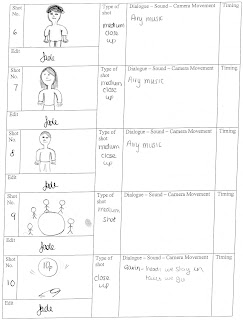 Shot No. Type of shot Dialogue – Sound – Camera Movement Timing
6 medium close up Any music
Edit Jade
Shot No. Type of shot Dialogue – Sound – Camera Movement Timing
7 medium close up Any music
Edit Jade
Shot No. Type of shot Dialogue – Sound – Camera Movement Timing
8 medium close up Any music
Edit Jade
Shot No. Type of shot Dialogue – Sound – Camera Movement Timing
9 medium shot
Edit Jade
Shot No. Type of shot Dialogue – Sound – Camera Movement Timing
10 10p close up we stay in,
we go
Edit Jade